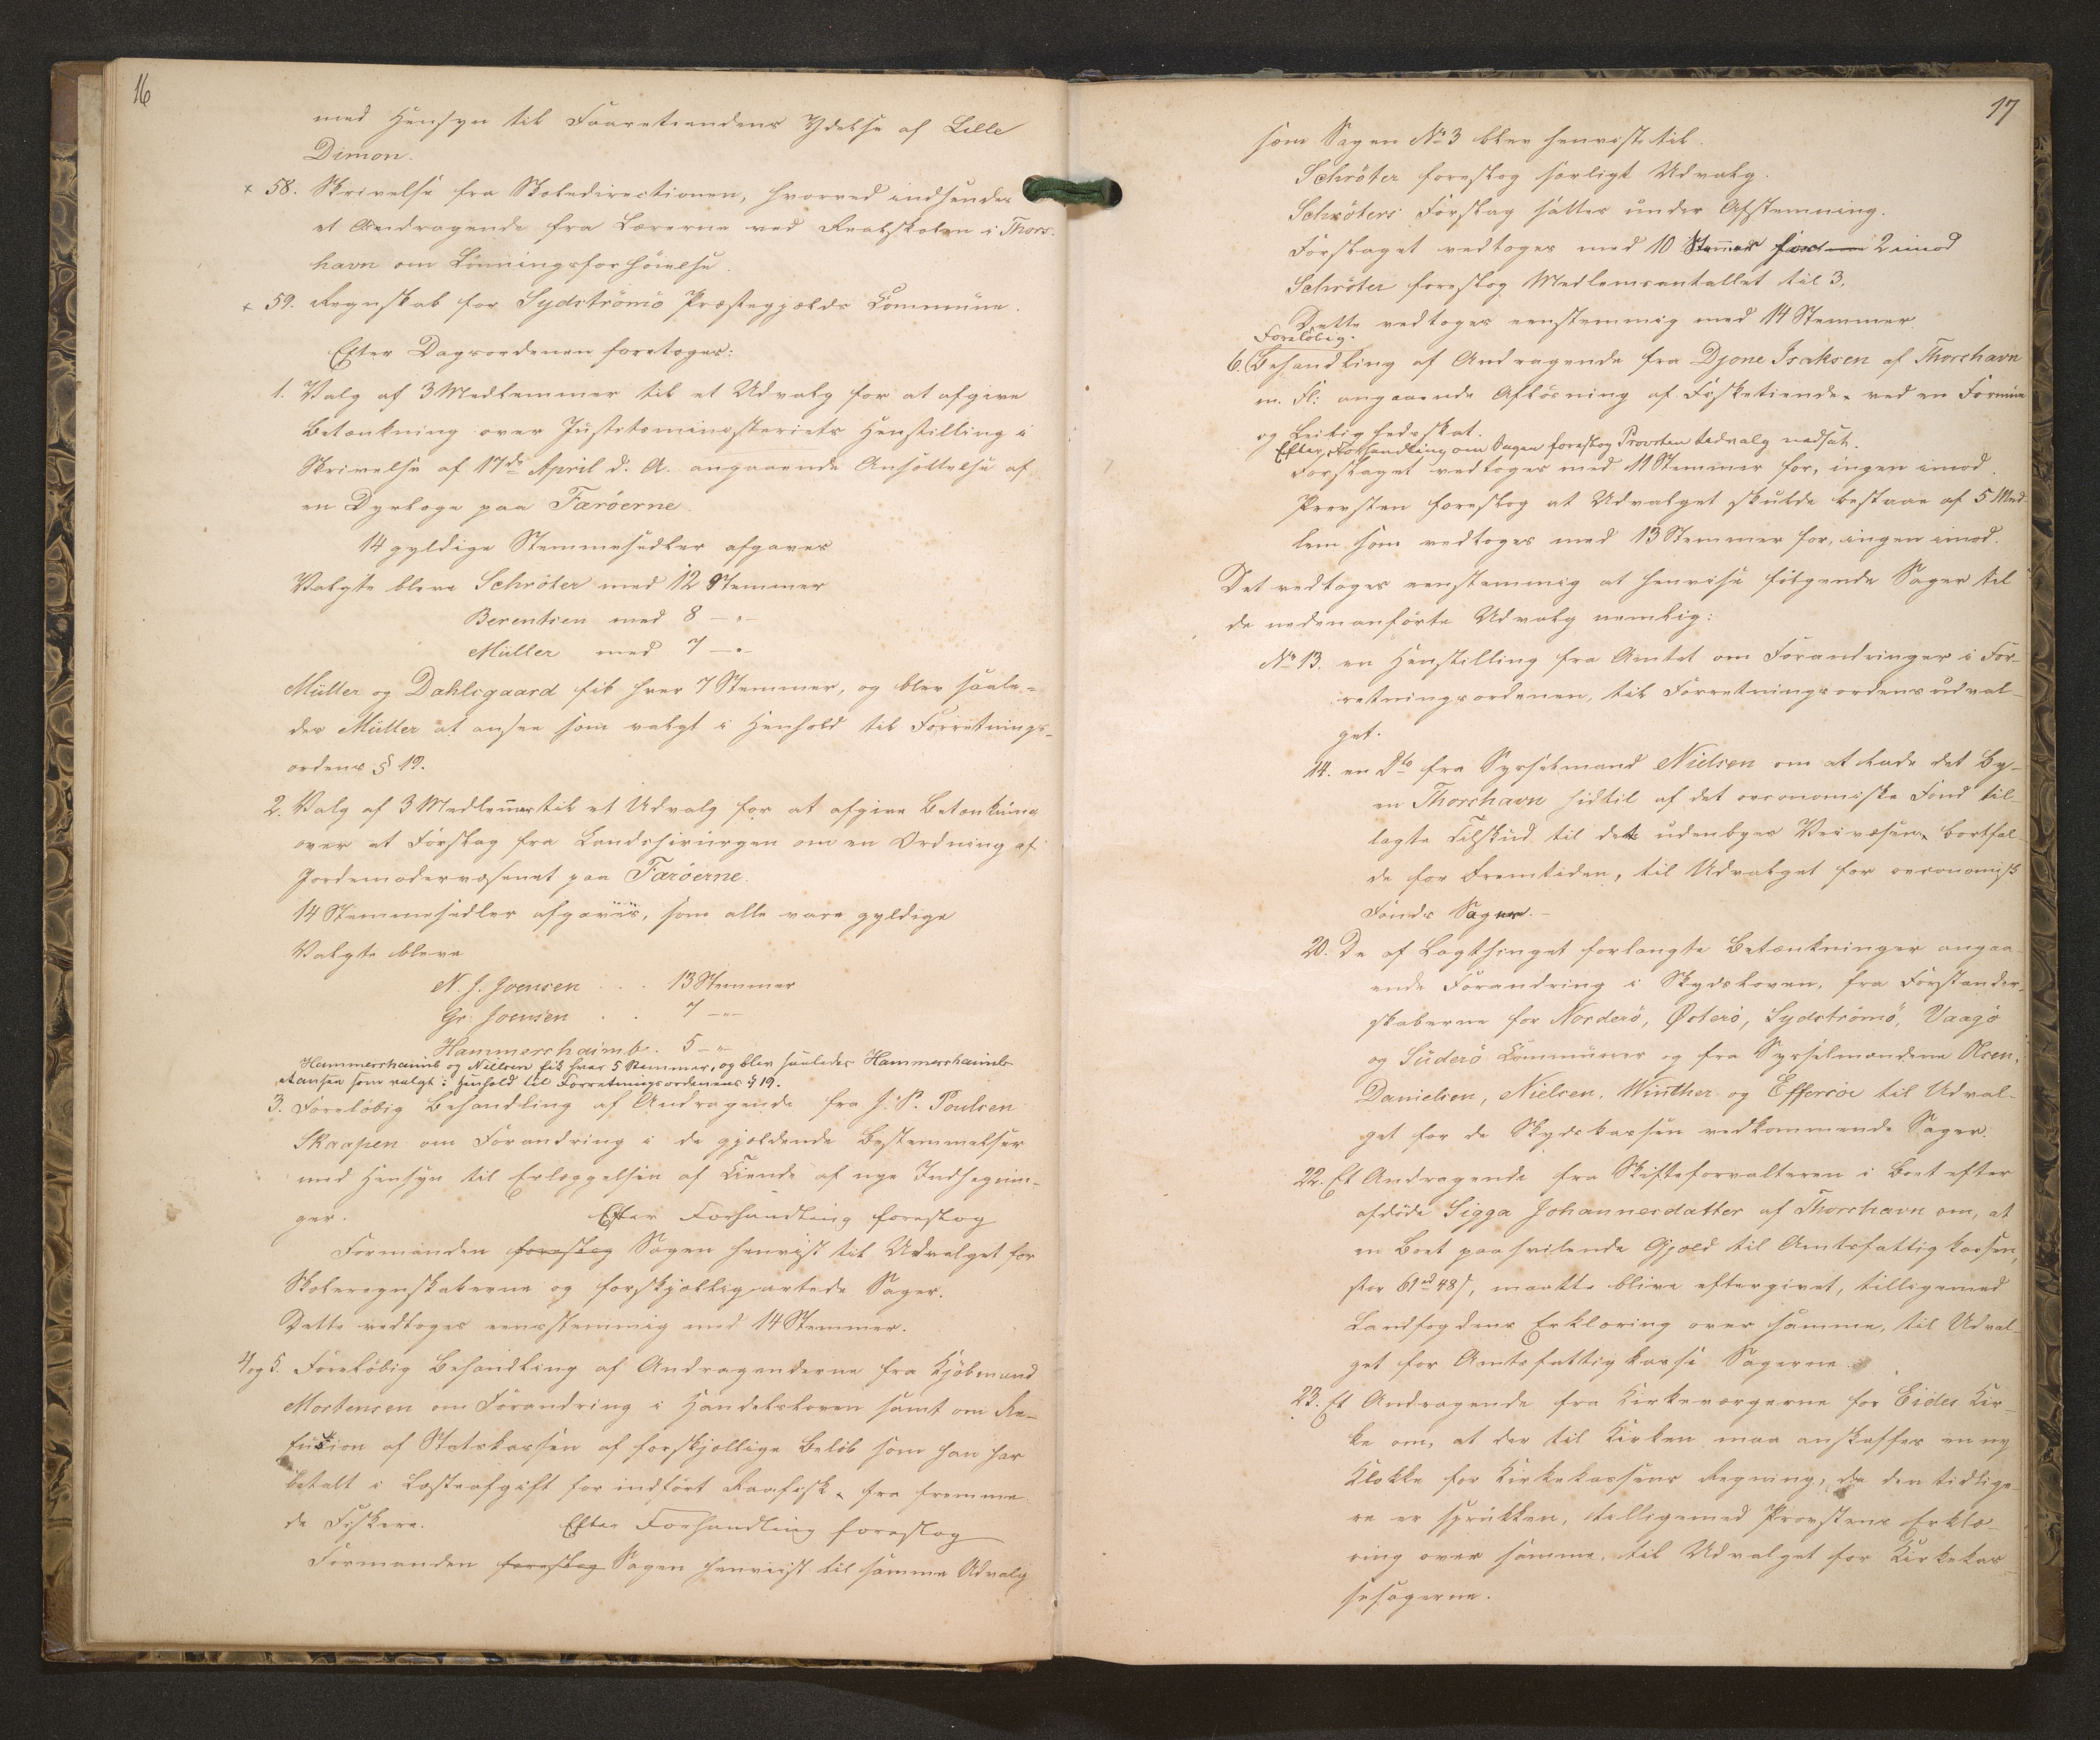 16
med Hensyn til Faaretiendens Ydelse af Lille
Dimon.
× 58. Skrivelse fra Skoledirectionen, hvorved indsendes
et Andragende fra Lærerne ved Realskolen i Thors-
havn om Lønningsforhöielse.
× 59. Regnskab for Sydströmö Præstegjælds Commune.
Efter Dagsordenen foretoges:
1. Valg af 3 Medlemmer til et Udvalg for at afgive
Betænkning over Justitsministeriets Henstilling i
Skrivelse af 17de April d. A. angaaende Ansættelse af
en Dyrlæge paa Færöerne.
14 gyldige Stemmesedler afgaves
Valgte bleve Schröter med 12 Stemmer
Berentsen med 8 — " —
Müller med 7 — " —
Müller og Dahlsgaard fik hver 7 Stemmer, og blev saale-
des Müller at ansee som valgt i Henhold til Forretnings-
ordens § 19.
2. Valg af 3 Medlemmer til et Udvalg for at afgive Betænkning
over et Forslag fra Landschirurgen om en Ordning af
Jordemodervæsenet paa Færöerne.
14 Stemmesedler afgaves, som alle vare gyldige
Valgte bleve
N. J. Joensen . . . 13 Stemmer
Gr. Joensen . . 7 — " —
Hammershaimb. 5 — " —
Hammershaimb og Nielsen fik hver 5 Stemmer, og blev saaledes Hammershaimb
at ansee som valgt i Henhold til Forretningsordenens § 19.
3. Foreløbig Behandling af Andragende fra J. P. Poulsen
Skaapen om Forandring i de gjældende Bestemmelser
med Hensyn til Erlæggelsen af Tiende af nye Indhegnin-
ger. Efter Forhandling foreslog
Formanden foreslog Sagen henvist til Udvalget for
Skoleregnskaberne og forskjelligartede Sager.
Dette vedtoges eenstemmig med 14 Stemmer.
4 og 5. Foreløbig Behandling af Andragenderne fra Kjöbmand
Mortensen om Forandring i Handelsloven samt om Re-
fusion af Statskassen af forskjellige Beløb som han har
betalt i Læsteafgift for indført Raafisk fra fremme-
de Fiskere. Efter Forhandling foreslog
Formanden foreslog Sagen henvist til samme Udvalg
17
som Sagen No 3 blev henvist til.
Schröter foreslog særligt Udvalg.
Schröters Forslag sattes under Afstemning.
Forslaget vedtoges med 10 Stemmer 2 imod
Schröter foreslog Medlemsantallet til 3.
Dette vedtoges eenstemmig med 14 Stemmer
Foreløbig.
6. Behandling af Andragende fra Djone Isaksen af Thorshavn
m. Fl: angaaende Afløsning af Fisketiende ved en Formue
og Leilighedsskat.
Efter Forhandling om Sagen foreslog Provsten Udvalg nedsat.
Forslaget vedtoges med 11 Stemmer for, ingen imod.
Provsten foreslog at Udvalget skulde bestaae af 5 Med-
lem som vedtoges med 13 Stemmer for, ingen imod.
Det vedtoges eenstemmig at henvise følgende Sager til
de nedenanførte Udvalg nemlig:
No 13. en Henstilling fra Amtet om Forandringer i For-
retningsordenen, til Forretningsordensudval-
get.
14. en Dto fra Sysselmand Nielsen om at lade det By-
en Thorshavn hidtil af det oeconomiske Fond til-
lagte Tilskud til det udenbyes Veivæsen bortfal-
de for Fremtiden, til Udvalget for oeconomisk
Fonds Sager. -
20. De af Lagthinget forlangte Betænkninger angaa-
ende Forandring i Skydsloven, fra Forstander-
skaberne for Norderö, Østerö, Sydströmö, Vaagö
og Süderö Communer og fra Sysselmændene Olsen,
Danielsen, Nielsen, Winther og Effersöe til Udval-
get for de Skydskassen vedkommende Sager.
22. Et Andragende fra Skifteforvalteren i Boet efter
afdøde Sigga Johannesdatter af Thorshavn om, at
en Boet paahvilende Gjæld til Amtsfattigkassen,
stor 61 rd 48 s, maatte blive eftergivet, tilligemed
Landfogdens Erklæring over samme, til Udval-
get for Amtsfattigkasse Sagerne.
23. Et Andragende fra Kirkeværgerne for Eides Kir-
ke om, at der til Kirken maa anskaffes en ny
Klokke for Kirkekassens Regning, da den tidlige-
re er sprukken, tilligemed Provstens Erklæ-
ring over samme, til Udvalget for Kirkekas-
sesagerne.